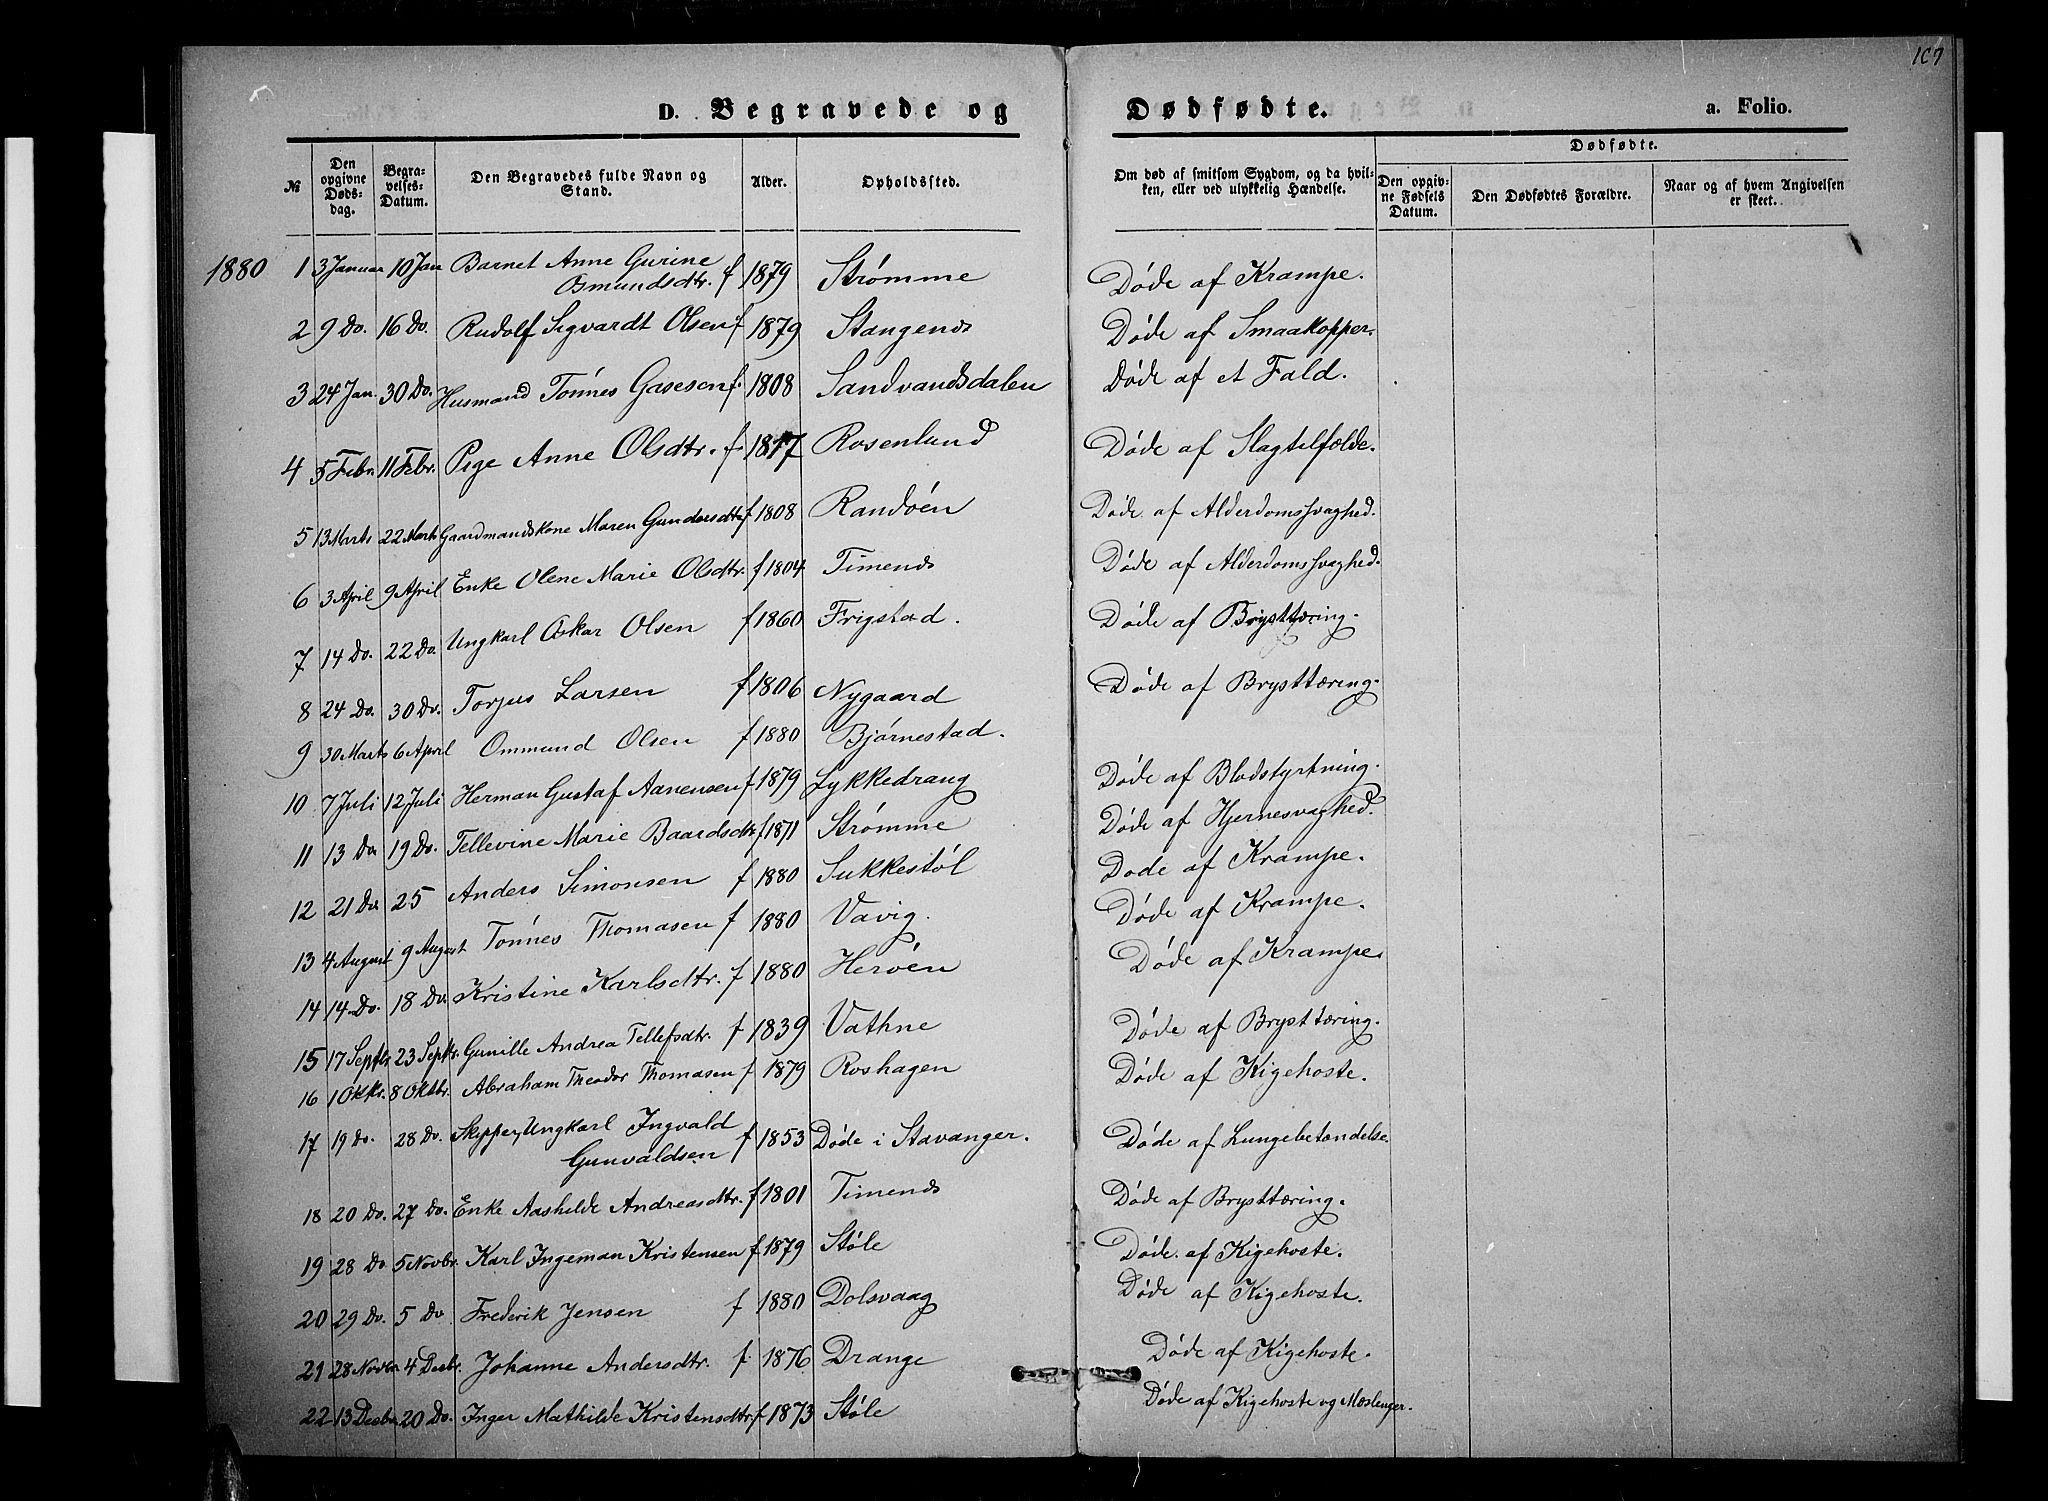 107
D. Begravede og Dødfødte. a. Folio.
№ Den opgivne Døds-dag. Begra-velses-Datum. Den Begravedes fulde Navn og Stand. Alder. Opholdssted. Om død af smitsom Sygdom, og da hvil-ken, eller ved ulykkelig Hændelse. Dødfødte. Den opgiv-ne Fødsels Datum. Den Dødfødtes Forældre. Naar og af hvem Angivelsen er skeet.
1880 1 3 Januar 10 Jan Barnet Anne Gurine
Osmundsdtr. f 1879 Strømme Døde af Krampe.
2 9 Do. 16 Do. Rudolf Sigvardt Olsen f 1879 Stangenes Døde af Smaakopper.
3 24 Jan. 30 Do. Husmand Tónnes Gasesen f. 1808 Sandvandsdalen Døde af et Fald.
4 5 Febr. 11 Febr. Pige Anne Olsdtr. f 1817 Rosenlund Døde af Slagtilfælde.
5 13 Marts 22 Marts Gaardmandskone Maren Gundersdtr f 1808 Randóen Døde af Alderdomssvaghed.
6 3 April 9 April Enke Olene Marie Olsdtr. f 1804 Timenes Døde af Alderdomssvaghed.
7 14 Do. 22 Do. Ungkarl Oskar Olsen f 1860 Frigstad. Døde af Brysttæring.
8 24 Do. 30 Do. Torjus Larsen f 1806 Nygaard Døde af Brysttæring.
9 30 Marts 6 April Ommund Olsen f 1880 Bjørnestad.
10 7 Juli 12 Juli Herman Gustaf Aanensen f 1879 Lykkedrang Døde af Blodstyrtning.
11 13 Do 19 Do. Tellevine Marie Baardsdtr f 1871 Strømme Døde af Hjernesvaghed.
12 21 Do. 25 Anders Simonsen f 1880 Sukkestól Døde af Krampe.
13 4 August 9 August Tónnes Thomasen f 1880 Vavig. Døde af Krampe.
14 14 Do. 18 Do. Kristine Karlsdtr. f 1880 Heróen Døde af Krampe.
15 17 Septbr 23 Septbr. Gunille Andrea Tellefsdtr. f 1839 Vathne Døde af Brysttæring.
16 1 Oktbr. 8 Oktbr. Abraham Theodor Thomasen f 1879 Roshagen Døde af Kigehoste.
17 19 Do. 28 Do. Skipper, Ungkarl Ingvald
Gunvaldsen f 1853 Døde i Stavanger. Døde af Lungebetændelse
18 20 Do. 27 Do. Enke Aashilde Andreasdtr. f 1801 Timenes Døde af Brysttæring.
19 28 Do 5 Novbr. Karl Ingeman Kristensen f 1879 Støle Døde af Kigehoste.
20 29 Do. 5 Do Frederik Jensen f 1880 Dolsvaag Døde af Kigehoste.
21 28 Novbr. 4 Decbr. Johanne Andersdtr. f. 1876 Drange Døde af Kigehoste.
22 13 Decbr 20 Do. Inger Mathilde Kristensdtr f 1873 Støle Døde af Kigehoste og Mæslenger.